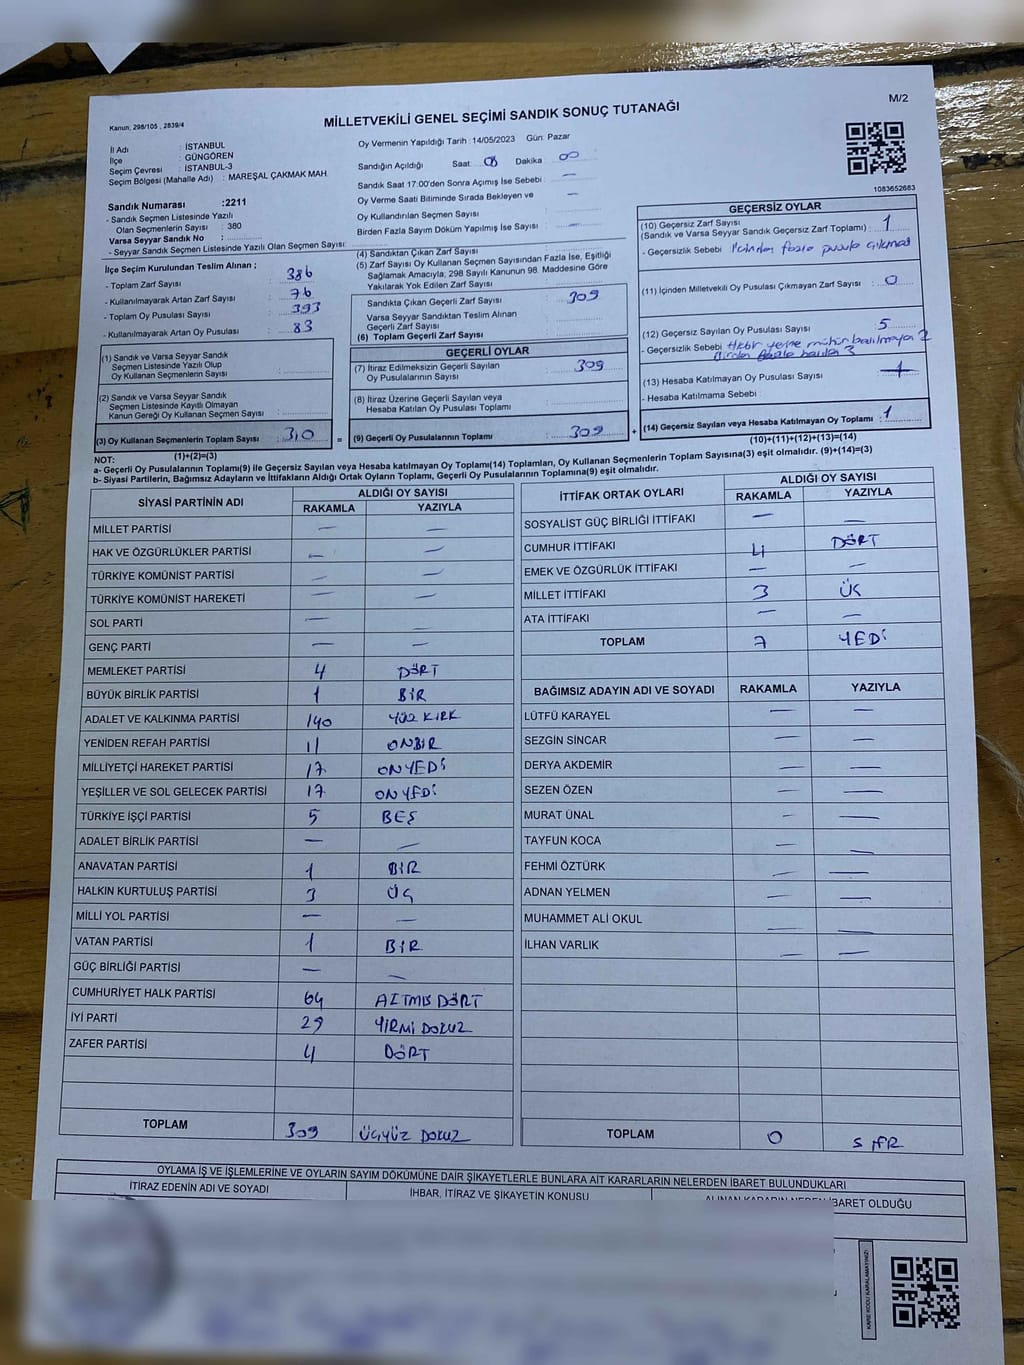 M/2
MİLLETVEKİLİ GENEL SEÇİMİ SANDIK SONUÇ TUTANAĞI
Kanun; 298/105 , 2839/4
İl Adı : İSTANBUL
İlçe : GÜNGÖREN
Seçim Çevresi : İSTANBUL-3
Seçim Bölgesi (Mahalle Adı) : MAREŞAL ÇAKMAK MAH.
Sandık Numarası :2211
- Sandık Seçmen Listesinde Yazılı
Olan Seçmenlerin Sayısı : 380
Varsa Seyyar Sandık No :
- Seyyar Sandık Seçmen Listesinde Yazılı Olan Seçmen Sayısı:
İlçe Seçim Kurulundan Teslim Alınan ;
- Toplam Zarf Sayısı : 386
- Kullanılmayarak Artan Zarf Sayısı : 76
- Toplam Oy Pusulası Sayısı : 393
- Kullanılmayarak Artan Oy Pusulası : 83
(1) Sandık ve Varsa Seyyar Sandık
Seçmen Listesinde Yazılı Olup
Oy Kullanan Seçmenlerin Sayısı :
(2) Sandık ve Varsa Seyyar Sandık
Seçmen Listesinde Kaydı Olmayan
Kanun Gereği Oy Kullanan Seçmen Sayısı :
(3) Oy Kullanan Seçmenlerin Toplam Sayısı : 310 =
(1)+(2)=(3)
Oy Vermenin Yapıldığı Tarih : 14/05/2023 Gün: Pazar
Sandığın Açıldığı Saat : 08 Dakika : 00
Sandık Saat 17:00'den Sonra Açımış İse Sebebi : —
Oy Verme Saati Bitiminde Sırada Bekleyen ve
Oy Kullandırılan Seçmen Sayısı : —
Birden Fazla Sayım Döküm Yapılmış İse Sayısı : —
(4) Sandıktan Çıkan Zarf Sayısı :
(5) Zarf Sayısı Oy Kullanan Seçmen Sayısından Fazla İse, Eşitliği
Sağlamak Amacıyla; 298 Sayılı Kanunun 98. Maddesine Göre
Yakılarak Yok Edilen Zarf Sayısı :
Sandıkta Çıkan Geçerli Zarf Sayısı : 309
Varsa Seyyar Sandıktan Teslim Alınan
Geçerli Zarf Sayısı :
(6) Toplam Geçerli Zarf Sayısı :
GEÇERLİ OYLAR
(7) İtiraz Edilmeksizin Geçerli Sayılan
Oy Pusulalarının Sayısı : 309
(8) İtiraz Üzerine Geçerli Sayılan veya
Hesaba Katılan Oy Pusulası Toplamı :
(9) Geçerli Oy Pusulalarının Toplamı : 309 +
1083652683
GEÇERSİZ OYLAR
(10) Geçersiz Zarf Sayısı
(Sandık ve Varsa Seyyar Sandık Geçersiz Zarf Toplamı) : 1
- Geçersizlik Sebebi : fazla pusula çıkması
(11) İçinden Milletvekili Oy Pusulası Çıkmayan Zarf Sayısı : 0
(12) Geçersiz Sayılan Oy Pusulası Sayısı : 5
- Geçersizlik Sebebi Hiçbir yerine mühür basılmayan 2
Birden fazla basılan 3
(13) Hesaba Katılmayan Oy Pusulası Sayısı : 1
- Hesaba Katılmama Sebebi :
(14) Geçersiz Sayılan veya Hesaba Katılmayan Oy Toplamı : 1
(10)+(11)+(12)+(13)=(14)
NOT:
a- Geçerli Oy Pusulalarının Toplamı(9) ile Geçersiz Sayılan veya Hesaba katılmayan Oy Toplamı(14) Toplamları, Oy Kullanan Seçmenlerin Toplam Sayısına(3) eşit olmalıdır. (9)+(14)=(3)
b- Siyasi Partilerin, Bağımsız Adayların ve İttifakların Aldığı Ortak Oyların Toplamı, Geçerli Oy Pusulalarının Toplamına(9) eşit olmalıdır.
SİYASİ PARTİNİN ADI ALDIĞI OY SAYISI
RAKAMLA YAZIYLA
MİLLET PARTİSİ — —
HAK VE ÖZGÜRLÜKLER PARTİSİ — —
TÜRKİYE KOMÜNİST PARTİSİ — —
TÜRKİYE KOMÜNİST HAREKETİ — —
SOL PARTİ — —
GENÇ PARTİ — —
MEMLEKET PARTİSİ 4 DÖRT
BÜYÜK BİRLİK PARTİSİ 1 BİR
ADALET VE KALKINMA PARTİSİ 140 YÜZ KIRK
YENİDEN REFAH PARTİSİ 11 ONBİR
MİLLİYETÇİ HAREKET PARTİSİ 17 ONYEDİ
YEŞİLLER VE SOL GELECEK PARTİSİ 17 ONYEDİ
TÜRKİYE İŞÇİ PARTİSİ 5 BEŞ
ADALET BİRLİK PARTİSİ — —
ANAVATAN PARTİSİ 1 BİR
HALKIN KURTULUŞ PARTİSİ 3 ÜÇ
MİLLİ YOL PARTİSİ — —
VATAN PARTİSİ 1 BİR
GÜÇ BİRLİĞİ PARTİSİ — —
CUMHURİYET HALK PARTİSİ 64 ALTMIŞ DÖRT
İYİ PARTİ 29 YİRMİ DOKUZ
ZAFER PARTİSİ 4 DÖRT
TOPLAM 309 ÜÇYÜZ DOKUZ
İTTİFAK ORTAK OYLARI ALDIĞI OY SAYISI
RAKAMLA YAZIYLA
SOSYALİST GÜÇ BİRLİĞİ İTTİFAKI — —
CUMHUR İTTİFAKI 4 DÖRT
EMEK VE ÖZGÜRLÜK İTTİFAKI — —
MİLLET İTTİFAKI 3 ÜÇ
ATA İTTİFAKI — —
TOPLAM 7 YEDİ
BAĞIMSIZ ADAYIN ADI VE SOYADI RAKAMLA YAZIYLA
LÜTFÜ KARAYEL — —
SEZGİN SİNCAR — —
DERYA AKDEMİR — —
SEZEN ÖZEN — —
MURAT ÜNAL — —
TAYFUN KOCA — —
FEHMİ ÖZTÜRK — —
ADNAN YELMEN — —
MUHAMMET ALİ OKUL — —
İLHAN VARLIK — —
TOPLAM 0 SIFIR
OYLAMA İŞ VE İŞLEMLERİNE VE OYLARIN SAYIM DÖKÜMÜNE DAİR ŞİKAYETLERLE BUNLARA AİT KARARLARIN NELERDEN İBARET BULUNDUKLARI
İTİRAZ EDENİN ADI VE SOYADI İHBAR, İTİRAZ VE ŞİKAYETİN KONUSU ALINAN KARARIN NEDEN İBARET OLDUĞU
KARE KODU KARALAMAYINIZ!